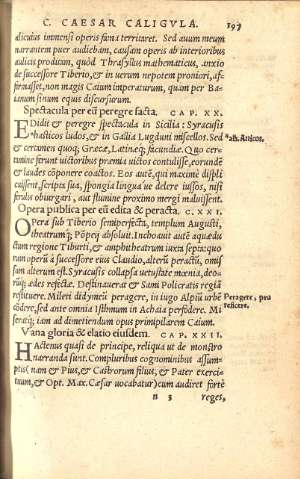 C. CAESAR CALIGVLA. 197
alicuius immensi operis fama territaret. Sed auum meum
narrantem puer audiebam, causam operis ab interioribus
aulicis proditam, quòd Thrasyllus mathematicus, anxio
de successore Tiberio, & in uerum nepotem proniori, af-
firmasset, non magis Caium imperaturum, quàm per Ba-
ianum sinum equis discursurum.
Spectacula per eum peregre facta. CAP. XX.
EDidit & peregre spectacula in Sicilia: Syracusis
hasticos ludos, & in Gallia Lugduni miscellos. Sed
& certamen quoq; Græcæ, Latinæq; facundiæ. Quo cer-
tamine ferunt uictoribus præmia uictos contulisse, eorundẽ
& laudes cõponere coactos. Eos autẽ, qui maximè displi
cuissent, scripta sua, spongia lingua ue delere iussos, nisi
ferulis obiurgari, aut flumine proximo mergi maluissent.
alt. Atticos.
Opera publica per eũ edita & peracta. C. XXI.
OPera sub Tiberio semiperfecta, templum Augusti,
theatrumq; Pompeij absoluit. Inchoauit autẽ aquæ
ductum regione Tiburti, & amphitheatrum iuxta septa: quo
rum operũ à successore eius Claudio, alterũ peractũ, omis
sum alterum est. Syracusis collapsa uetustate mœnia, deo-
rũq; ædes refectæ. Destinauerat & Sami Policratis regiã
restituere. Mileti didymeũ peragere, in iugo Alpiũ urbẽ
cõdere, sed ante omnia Isthmum in Achaia perfodere. Mi
seratq; iam ad dimetiendum opus primipilarem Caium.
Peragere, pro
reficere.
Vana gloria & elatio eiusdem. CAP. XXII.
HActenus quasi de principe, reliqua ut de monstro
narranda sunt. Compluribus cognominibus assum-
ptis (nam & Pius, & Castrorum filius, & Pater exerci-
tuum, & Opt. Max. Cæsar uocabatur) cum audiret fortè
n 3 reges,